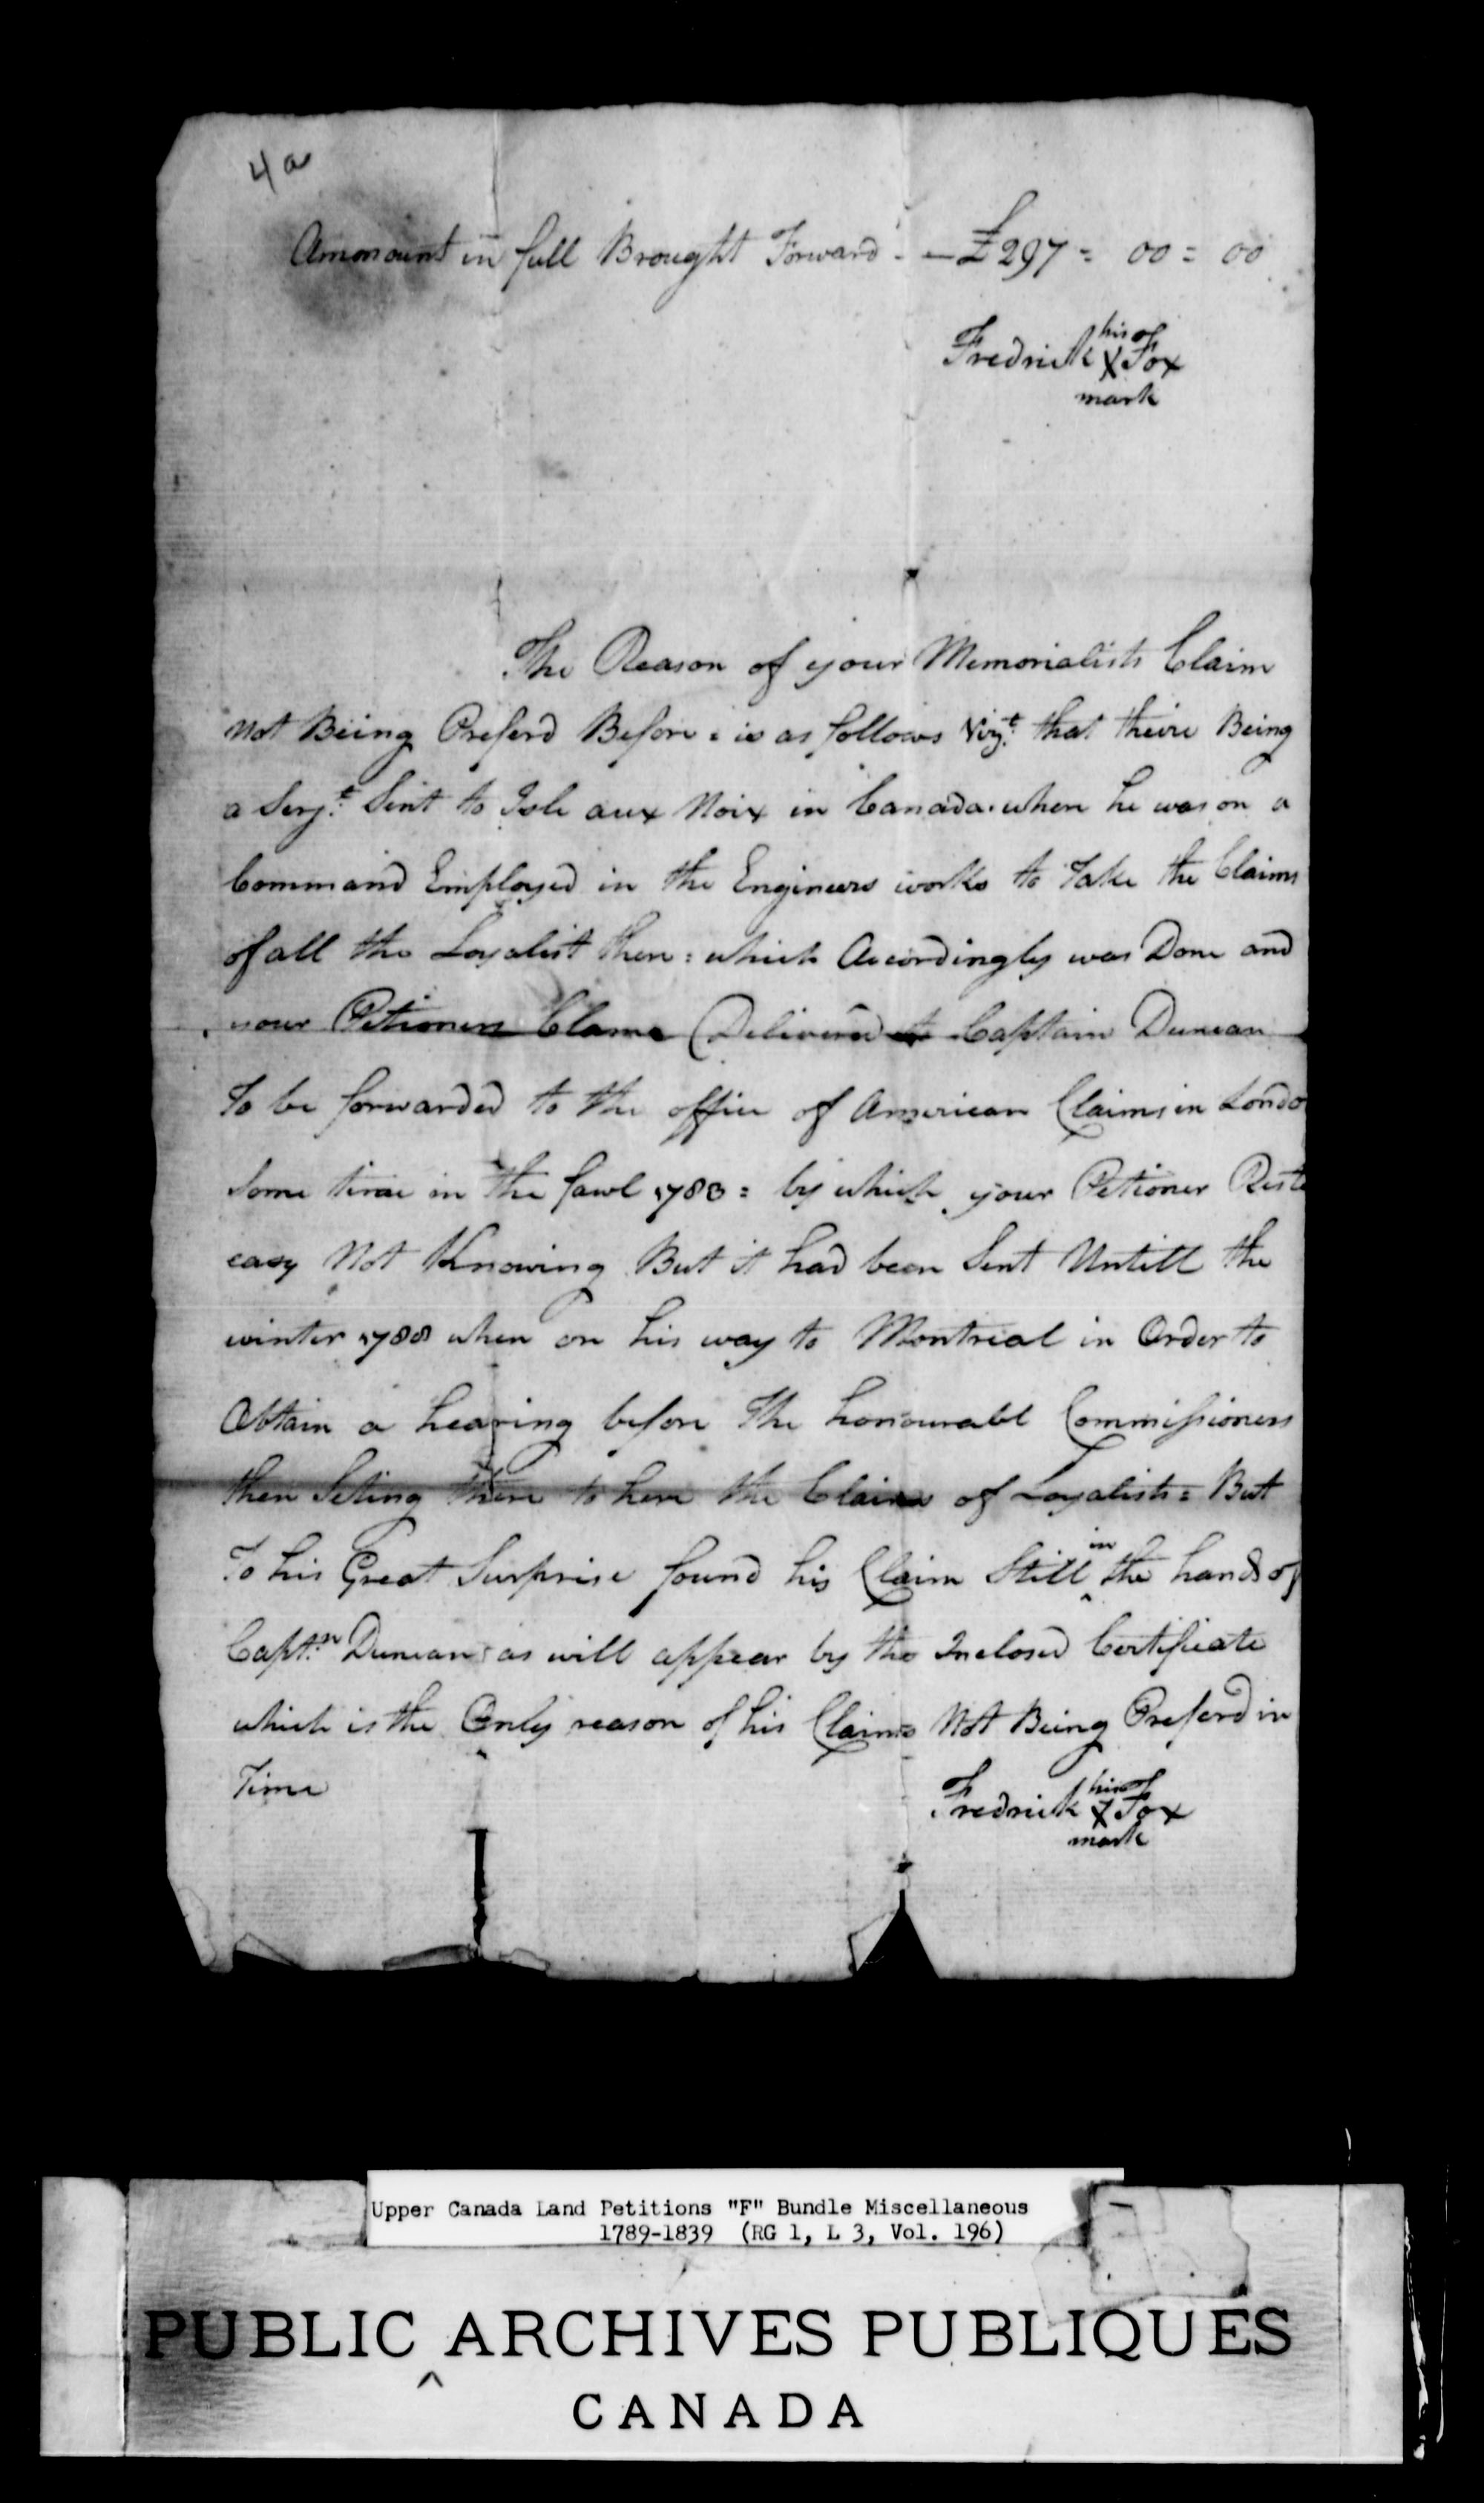 4a
Amomount in full Brought Forward - - £297 = 00 = 00
his
Fredrick X Fox
mark
The Reason of your Memorialists Claim
Not Being Preferd Before = is as follows Vizt. that theire Being
a Serjt. Sent to Isle aux Noix in Canada. when he was on a
Command Employed in the Engineers works to Take the Claims
of all the Loyalist there = which Accordingly was Done and
your Petioners Clame Deliverd to Captain Duncan
To be forwarded to the office of American Claims in Londo
Some time in the fawl 1783 = by which your Petioner Reste
easy Not Knowing But it had been Sent Untill the
winter 1788 when on his way to Montreal in Order to
Obtain a hearing before The honourabl Commissioners
then Seting there to here the Claims of Loyalists = But
To his Great Surprise found his Claim Still in the hands of
Captn. Duncan as will appear by the Inclosed Certificate
which is the Only reason of his Claims Not Being Preferd in
Time
his
Fredrick X Fox
mark
Upper Canada Land Petitions "F" Bundle Miscellaneous
1789-1839 (RG 1, L 3, Vol. 196)
PUBLIC ARCHIVES PUBLIQUES
CANADA